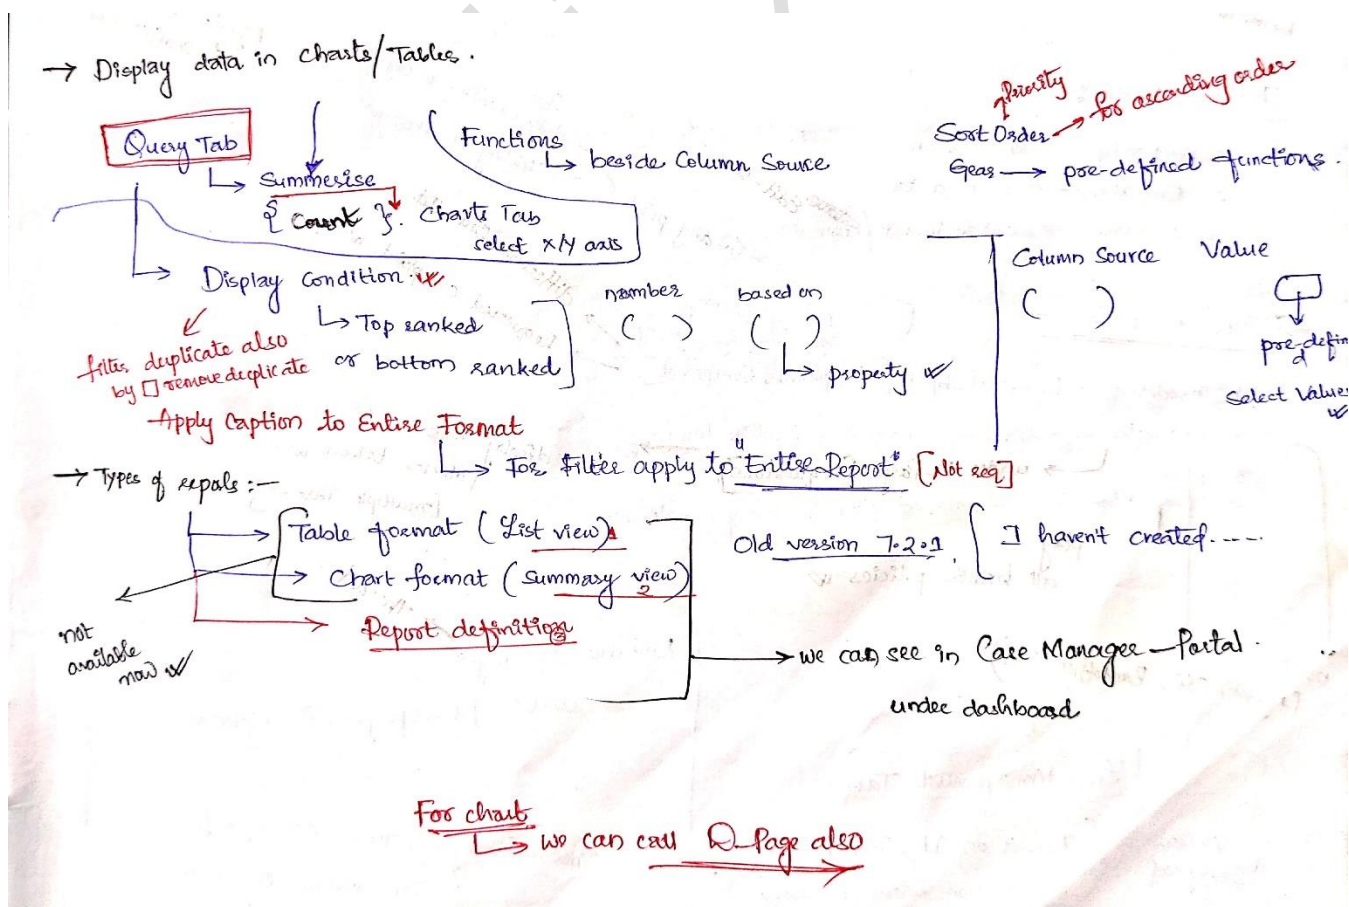 → Display data in charts/Tables.
Query Tab
↳ Summerise
{ Count }. Charts Tab
select x/y axis
Functions
↳ beside Column Source
Priority
Sort Order → for ascending order
Gear → pre-defined functions.
↳ Display Condition
↳ Top ranked
or bottom ranked
number based on
( ) ( )
↳ property
filter duplicate also
by □ remove duplicate
Column Source Value
( )
pre-defin
d
Select Values
Apply Caption to Entire Format
↳ For Filter apply to "Entire Report" [Not req]
→ Types of repots :-
→ Table format (List view) 1
→ Chart format (Summary view) 2
→ Report definition 3
not
available
now
Old version 7.2.1. { I haven't created.----
→ we can see in Case Manager - Portal.
under dashboard
For chart
↳ we can call D_Page also